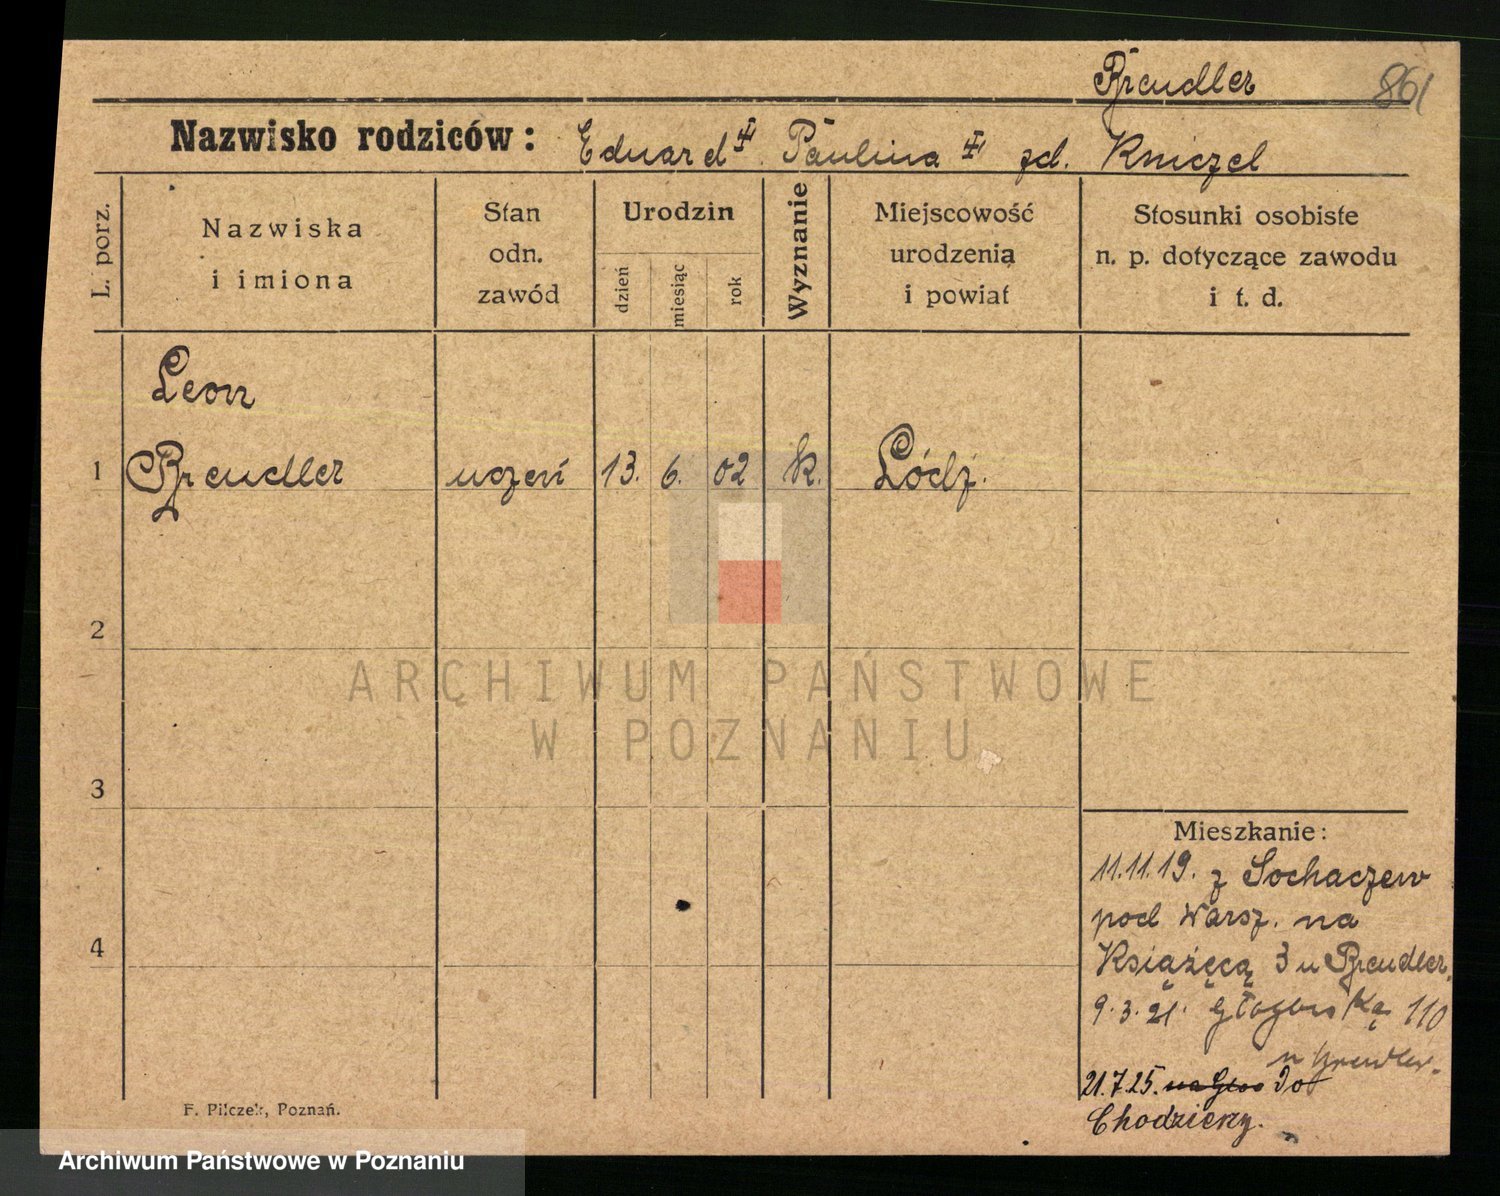 Brendler 861
Nazwisko rodziców: Eduard Paulina zd. Kniczel
L. porz.
Nazwiska
i imiona
Stan
odn.
zawód
Urodzin
dzień
miesiąc
rok
Wyznanie
Miejscowość
urodzenia
i powiat
Stosunki osobiste
n. p. dotyczące zawodu
i t. d.
Leon
1 Brendler uczeń 13. 6. 02 k. Łódź.
2
ARCHIWUM PAŃSTWOWE
W POZNANIU
3
4
Mieszkanie:
11.11.19. z Sochaczew
pod Warsz. na
Książęcą 3 u Brendler.
9.3.21. Głogowską 110
u Brendler.
21.7.25. na Głog do
Chodzieży.
F. Pilczek, Poznań.
Archiwum Państwowe w Poznaniu